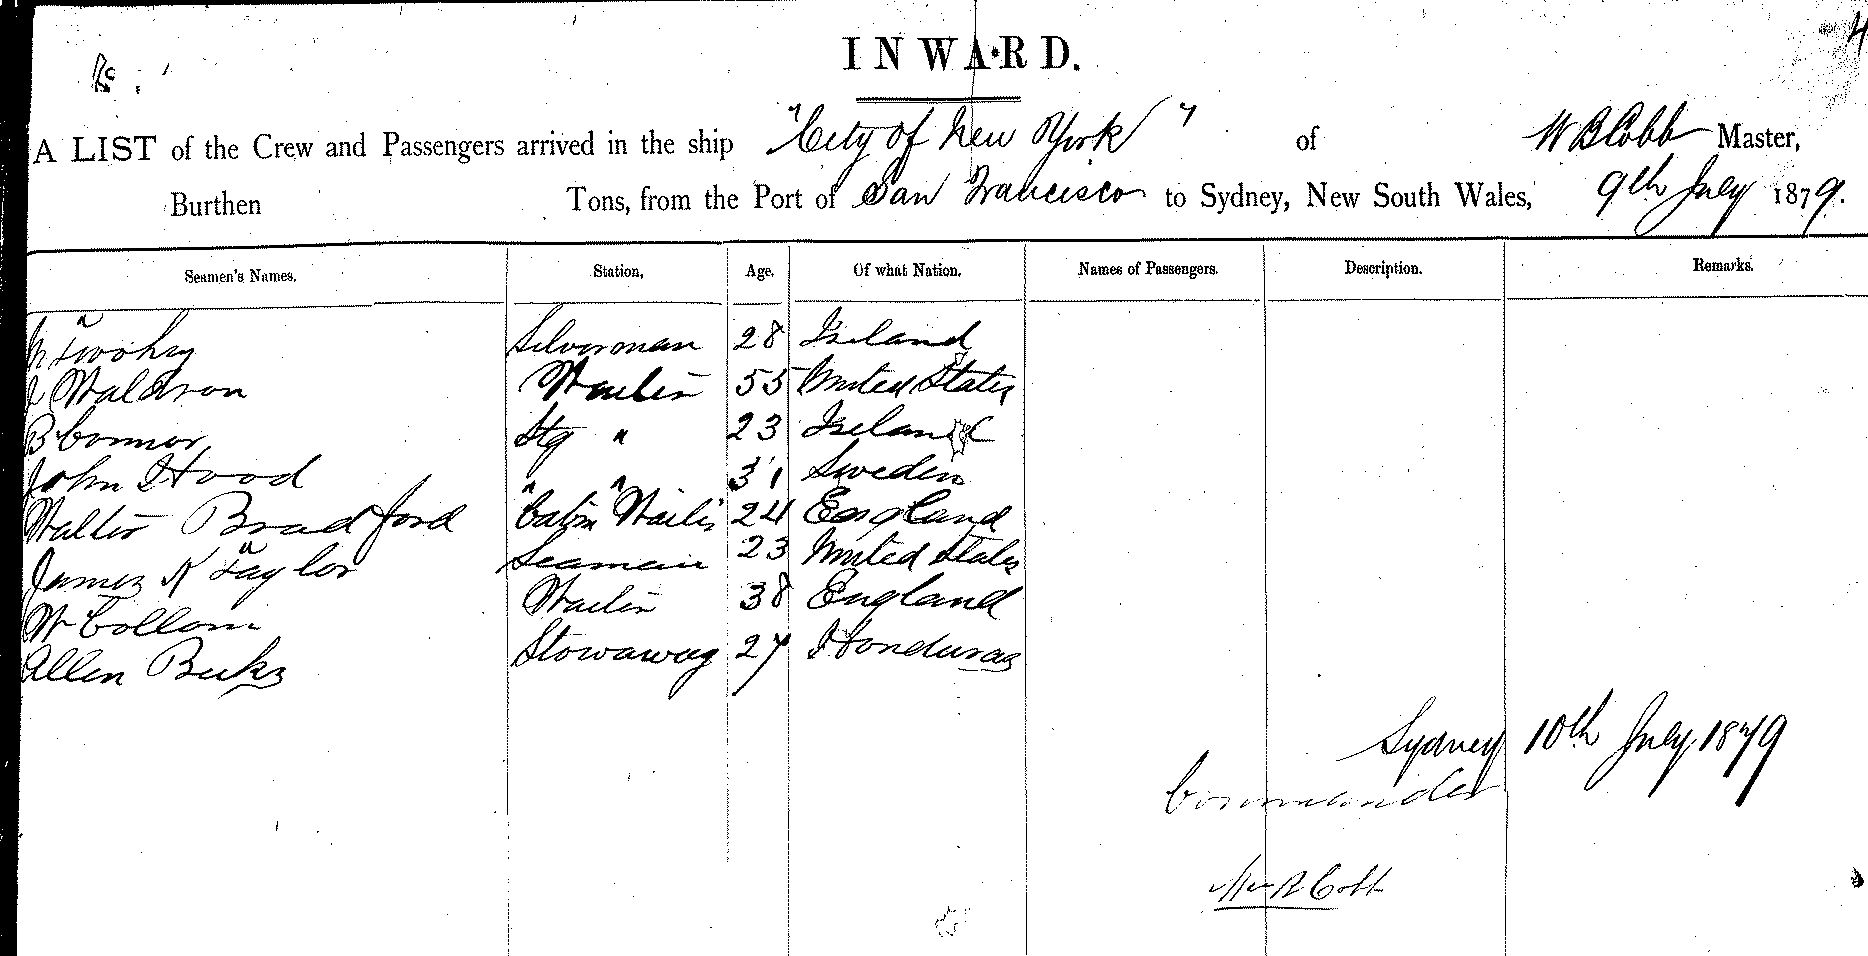 4
INWARD.
A LIST of the Crew and Passengers arrived in the ship "City of New York" of W B Cobb Master,
Burthen Tons, from the Port of San Francisco to Sydney, New South Wales, 9th July 1879.
Seamen's Names. Station, Age. Of what Nation. Names of Passengers. Description. Remarks.
Twohy Silverman 28 Ireland
J Waldron Waiter 55 United States
B Connor Stg " 23 Ireland
John Hood " " 31 Sweden
Walter Bradford Cabin Waiter 24 England
James K Taylor Seaman 23 United States
W Collom Waiter 38 England
Allen Burks Stowaway 27 Honduras
Sydney 10th July 1879
Commander
Wm B Cobb